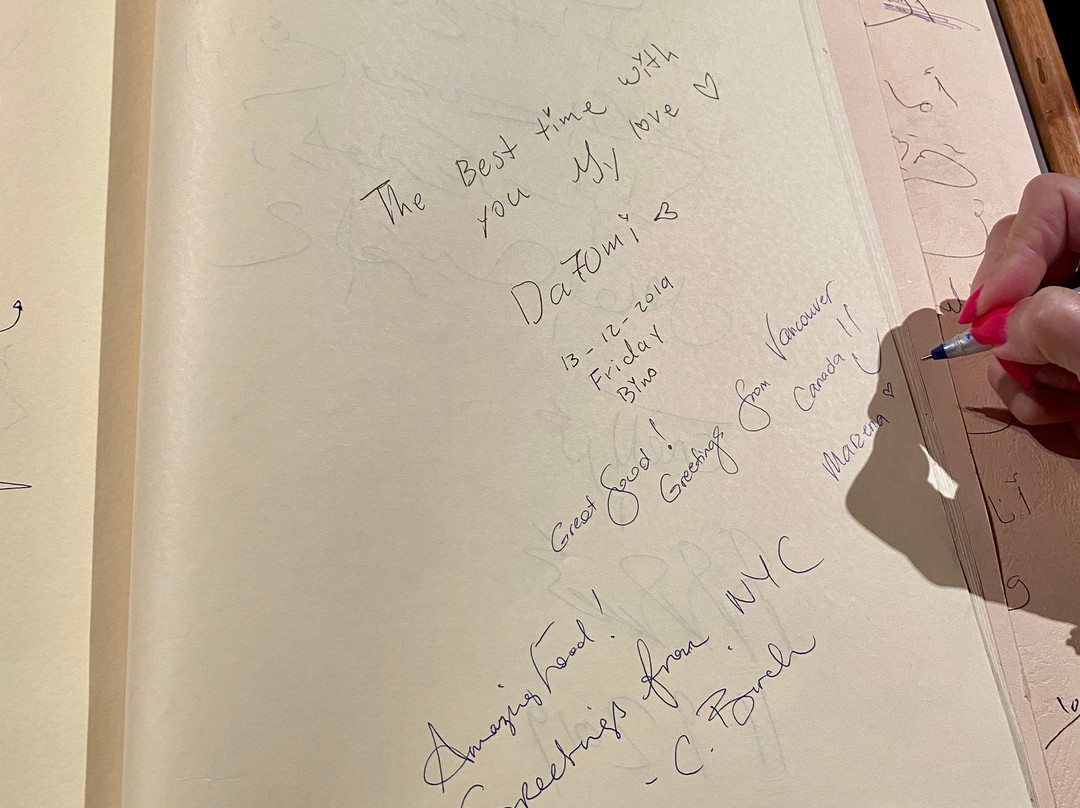 The Best time with
you My love ♡
Da7omi <3
13-12-2019
Friday
Great food!
Greetings from Vancouver
Canada !!
Marzena ♡
Amazing food!
Greetings from NYC
- C.